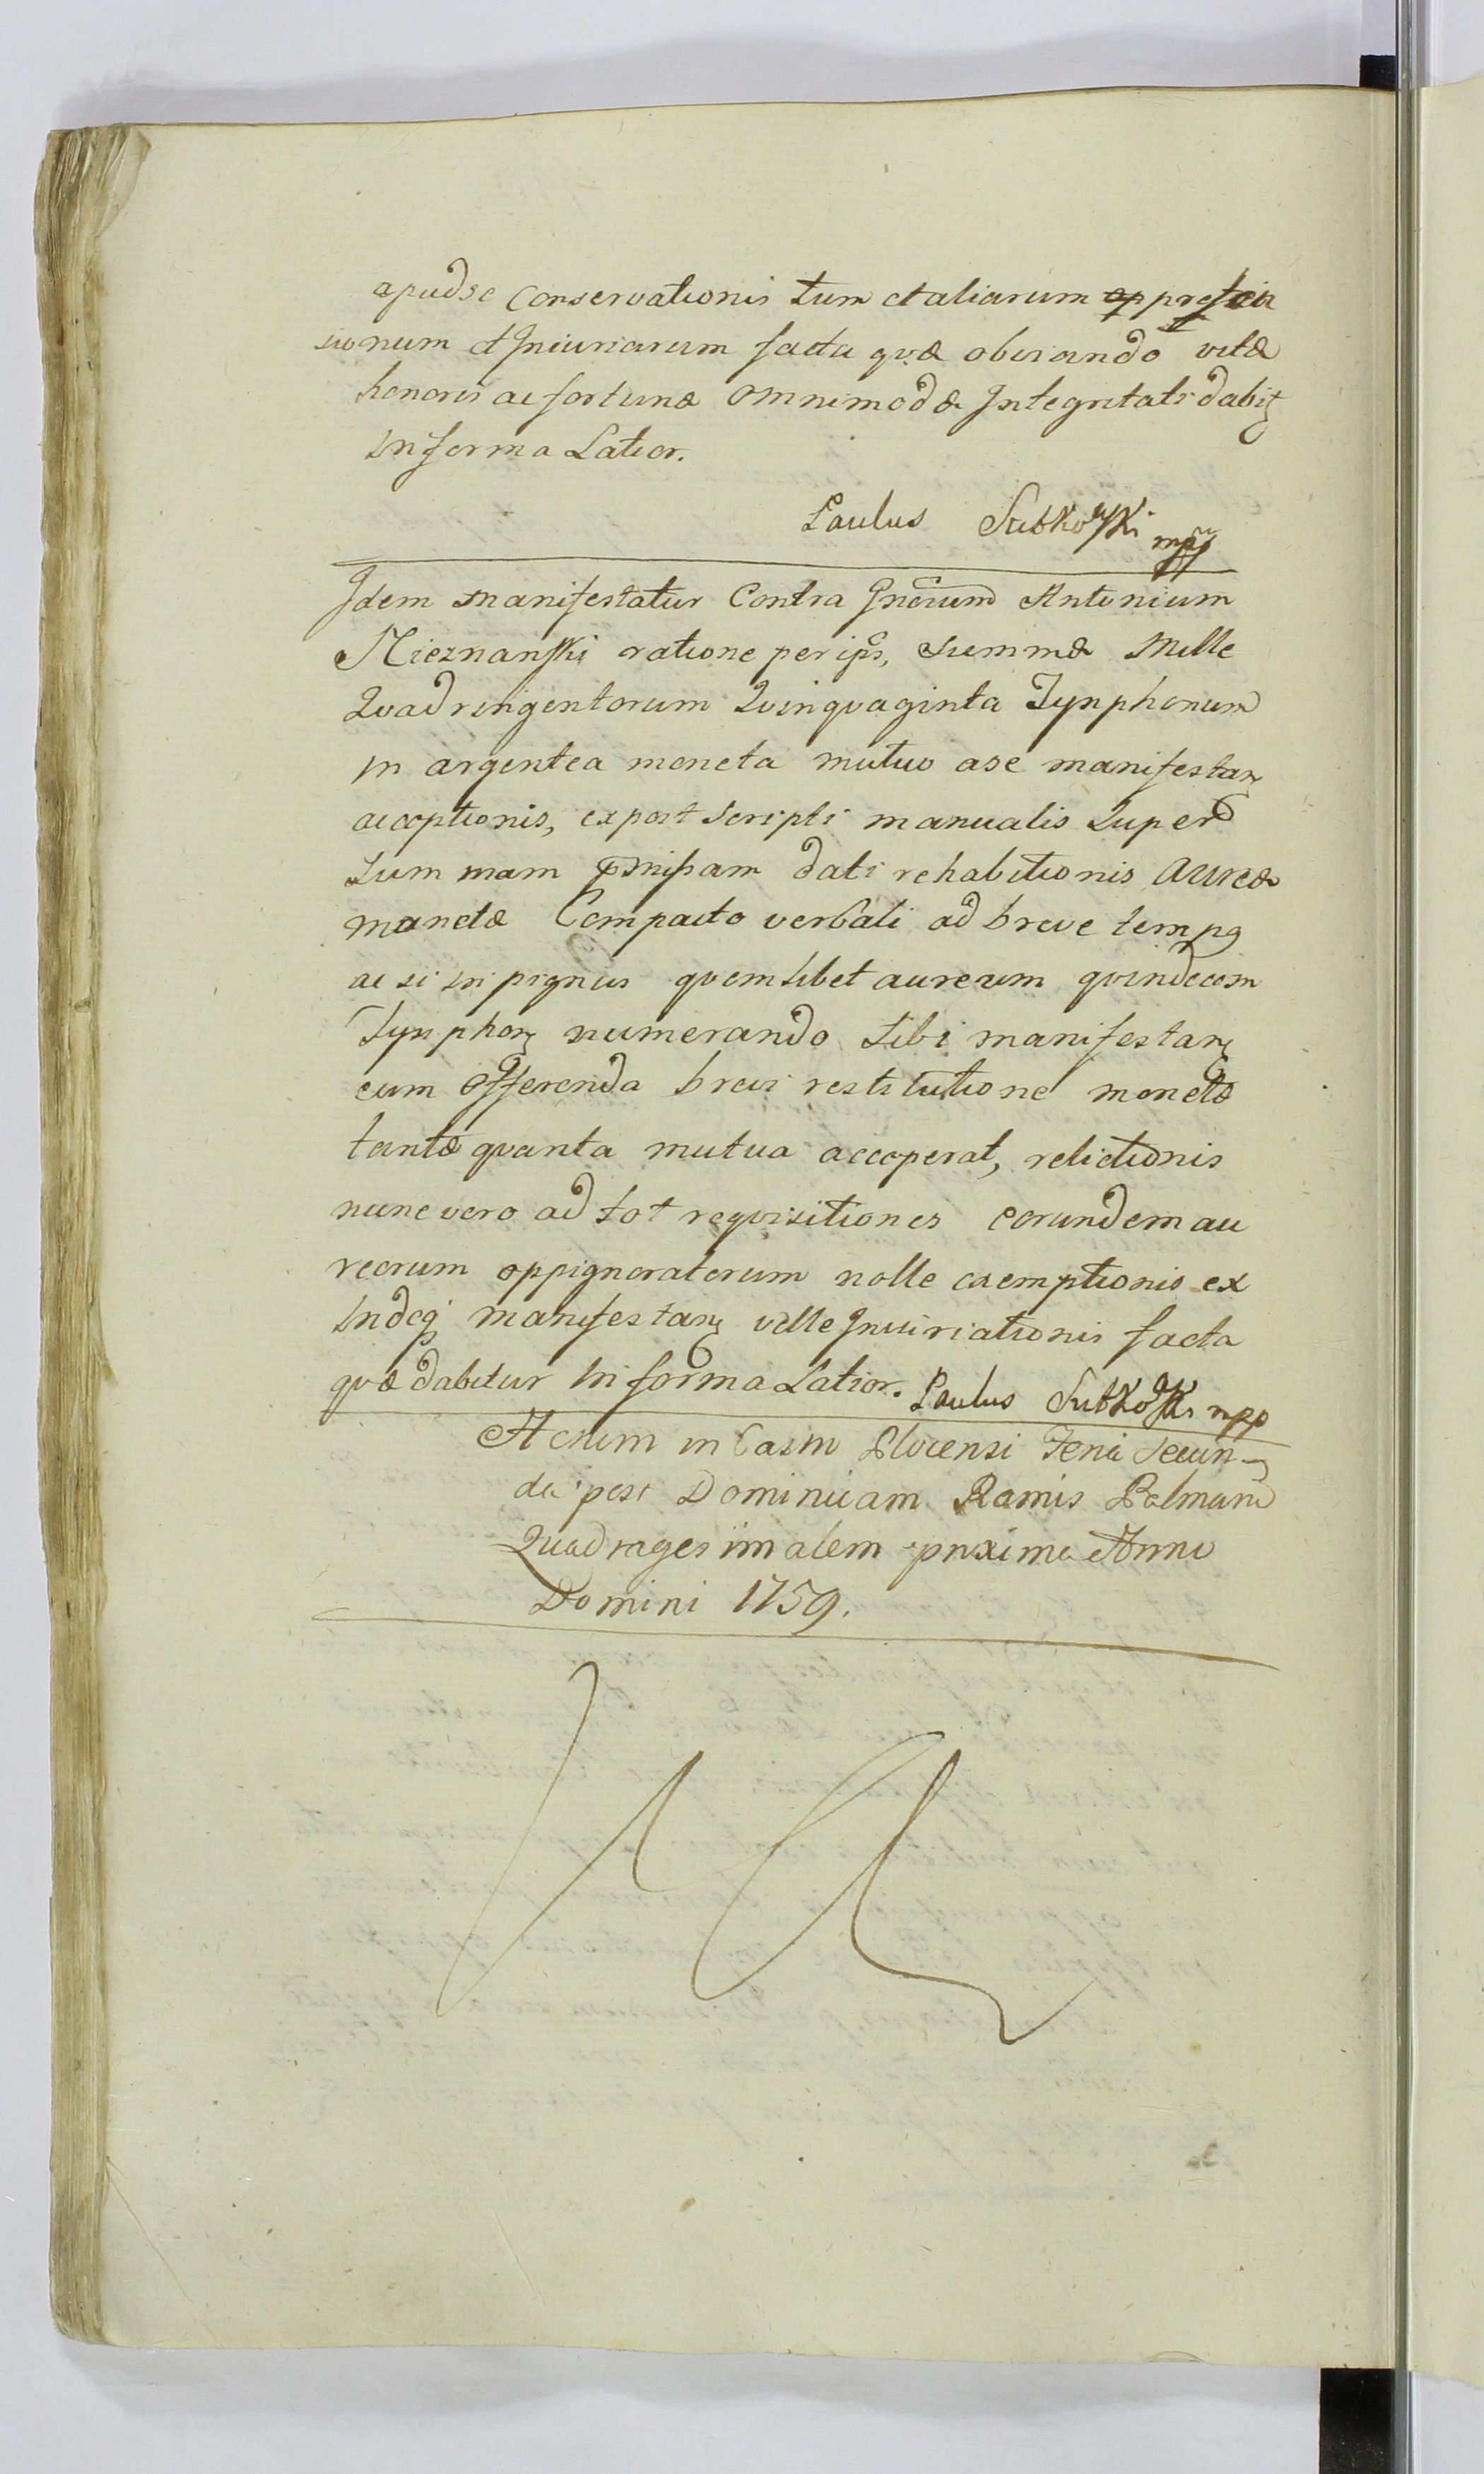 apud se Conservationis tum et aliarum oppres
sionum et Injuriarum facta quæ obviando vitæ
honoris ac fortunæ omnimodæ Integritati dabit
in forma Latior.
Paulus Sutkowski mpp
Idem manifestatur Contra Gnerum Antonium
Nieznanski ratione per ips, summæ Mille
Quadringentorum Quinquaginta Tynphonum
in argentea moneta mutuo a se manifestan
acceptionis, ex post scripti manualis super
summam dati rehabitionis aureæ
monetæ Compacto verbali ad breve temp9
ac si in pignus quemlibet aureum quindecem
Tynphon numerando sibi manifestan
cum offerenda brevi restitutione monetæ
tantæ quanta mutua acceperat, relictionis
nunc vero ad tot requisitiones eorundem au
reorum oppignoratorum nolle exemptionis ex
Indeq manifestan velle Iniuriationis facta
quæ dabitur in forma Latior. Paulus Sutkowski mpp
Actum in Castro Plocensi Feria secun-
da post Dominicam Ramis Palmarum
Quadragesimalem proxima Anno
Domini 1759.